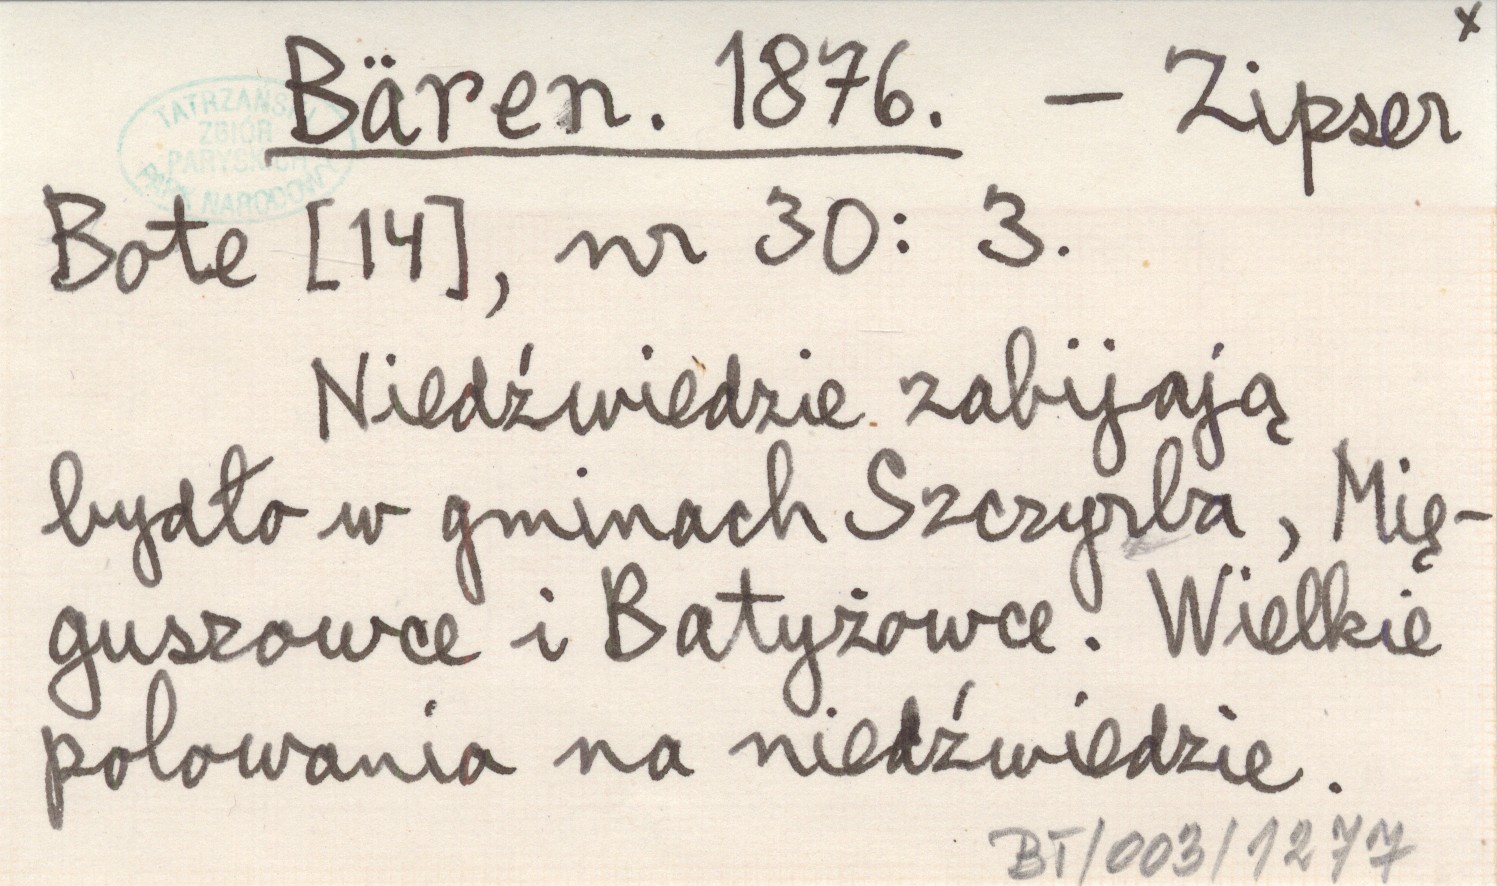 x
Bären. 1876. – Zipser
TATRZAŃSKI
ZBIÓR
PARYSKICH
NARODOWY
Bote [14], nr 30: 3.
Niedźwiedzie zabijają
bydło w gminach Szczyrba, Mię-
guszowce i Batyżowce. Wielkie
polowania na niedźwiedzie.
BT/003/1277